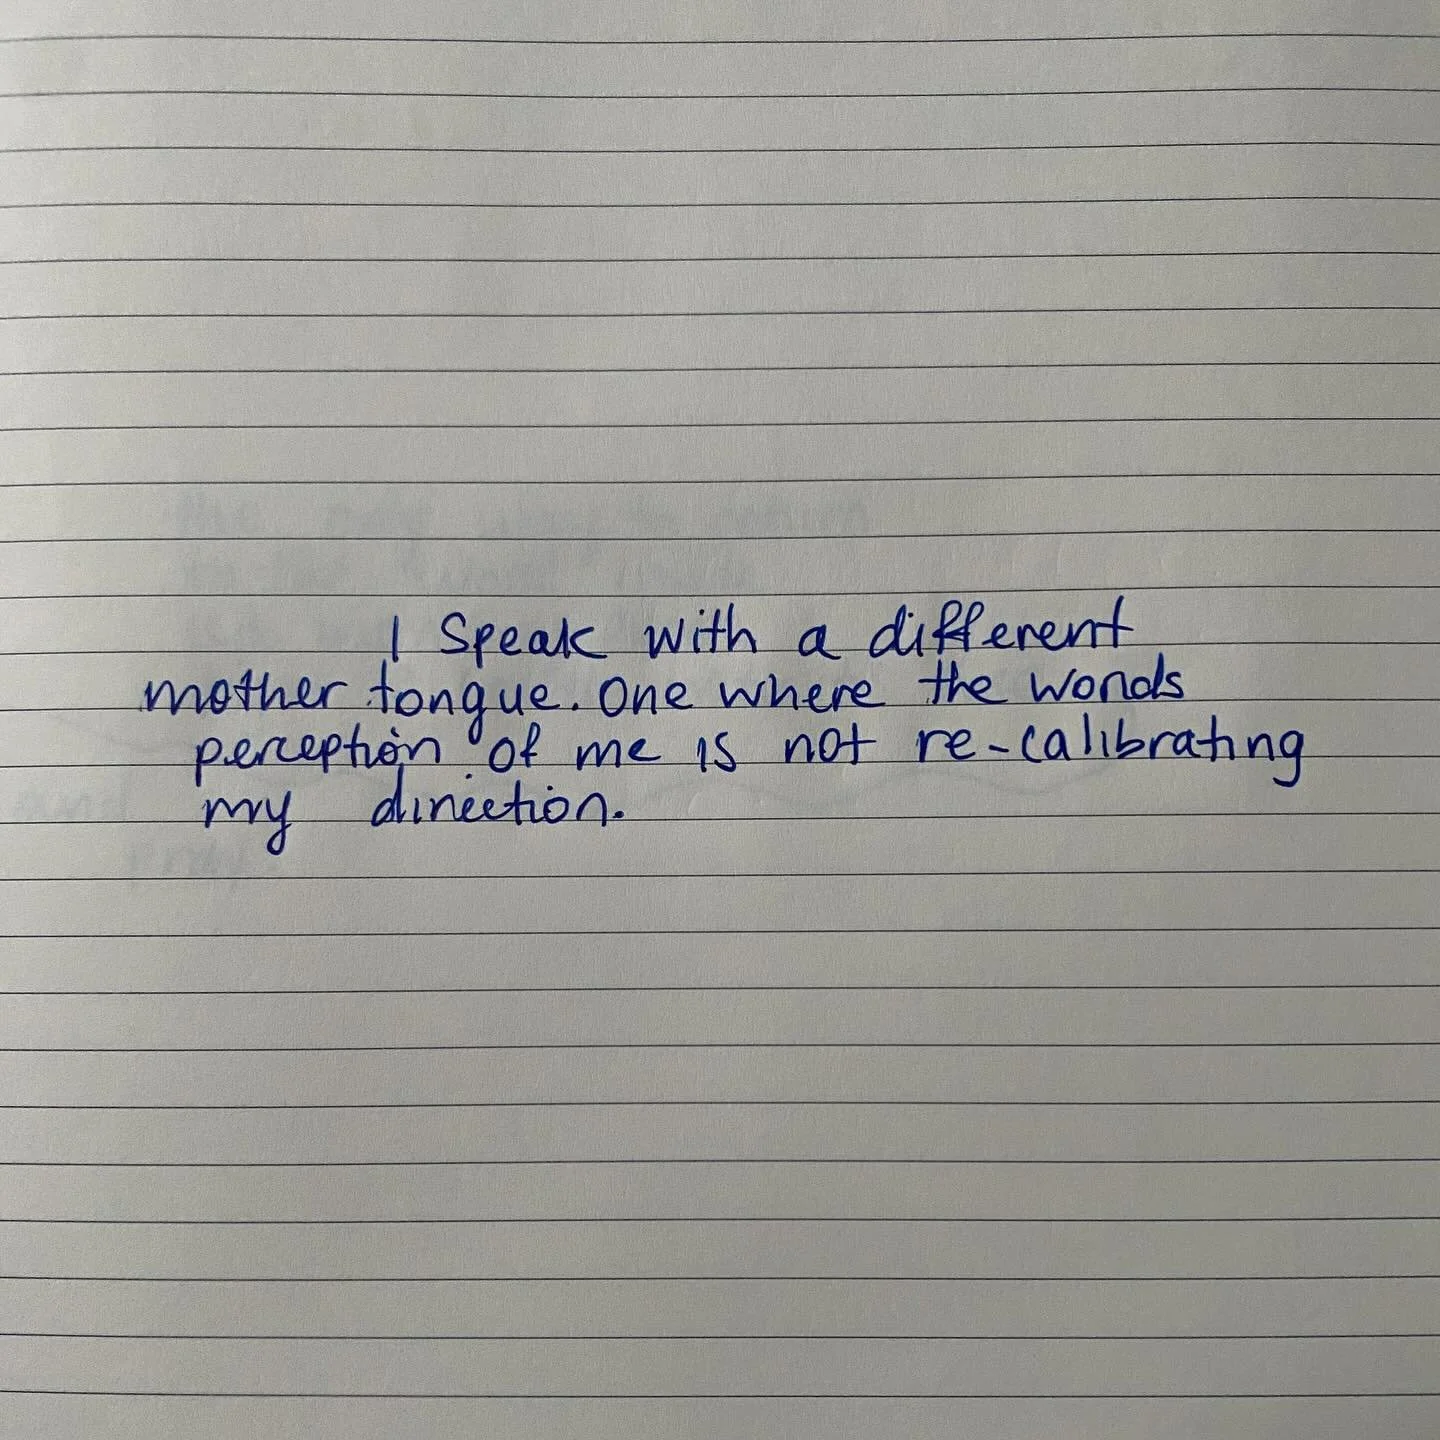 I Speak with a different
mother tongue. One where the words
perception of me is not re-calibrating
my direction.